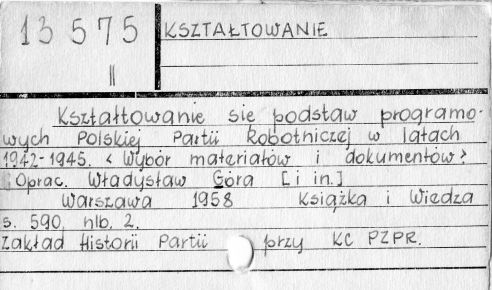 13 575
II
KSZTAŁTOWANIE
Kształtowanie się podstaw programo-
wych Polskiej Partii Robotniczej w latach
1942-1945. < Wybór materiałów i dokumentów >
Oprac. Władysław Góra [i in.]
Warszawa 1958 Książka i Wiedza
s. 590, nlb. 2.
Zakład Historii Partii przy KC PZPR.